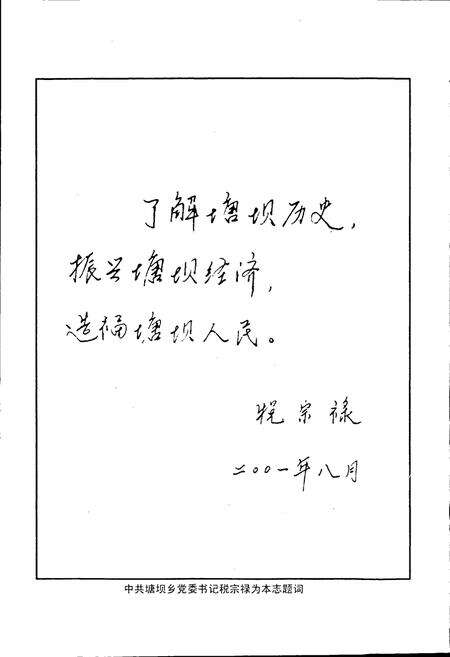 了解塘坝历史，
振兴塘坝经济，
造福塘坝人民。
税宗禄
二〇〇一年八月
中共塘坝乡党委书记税宗禄为本志题词